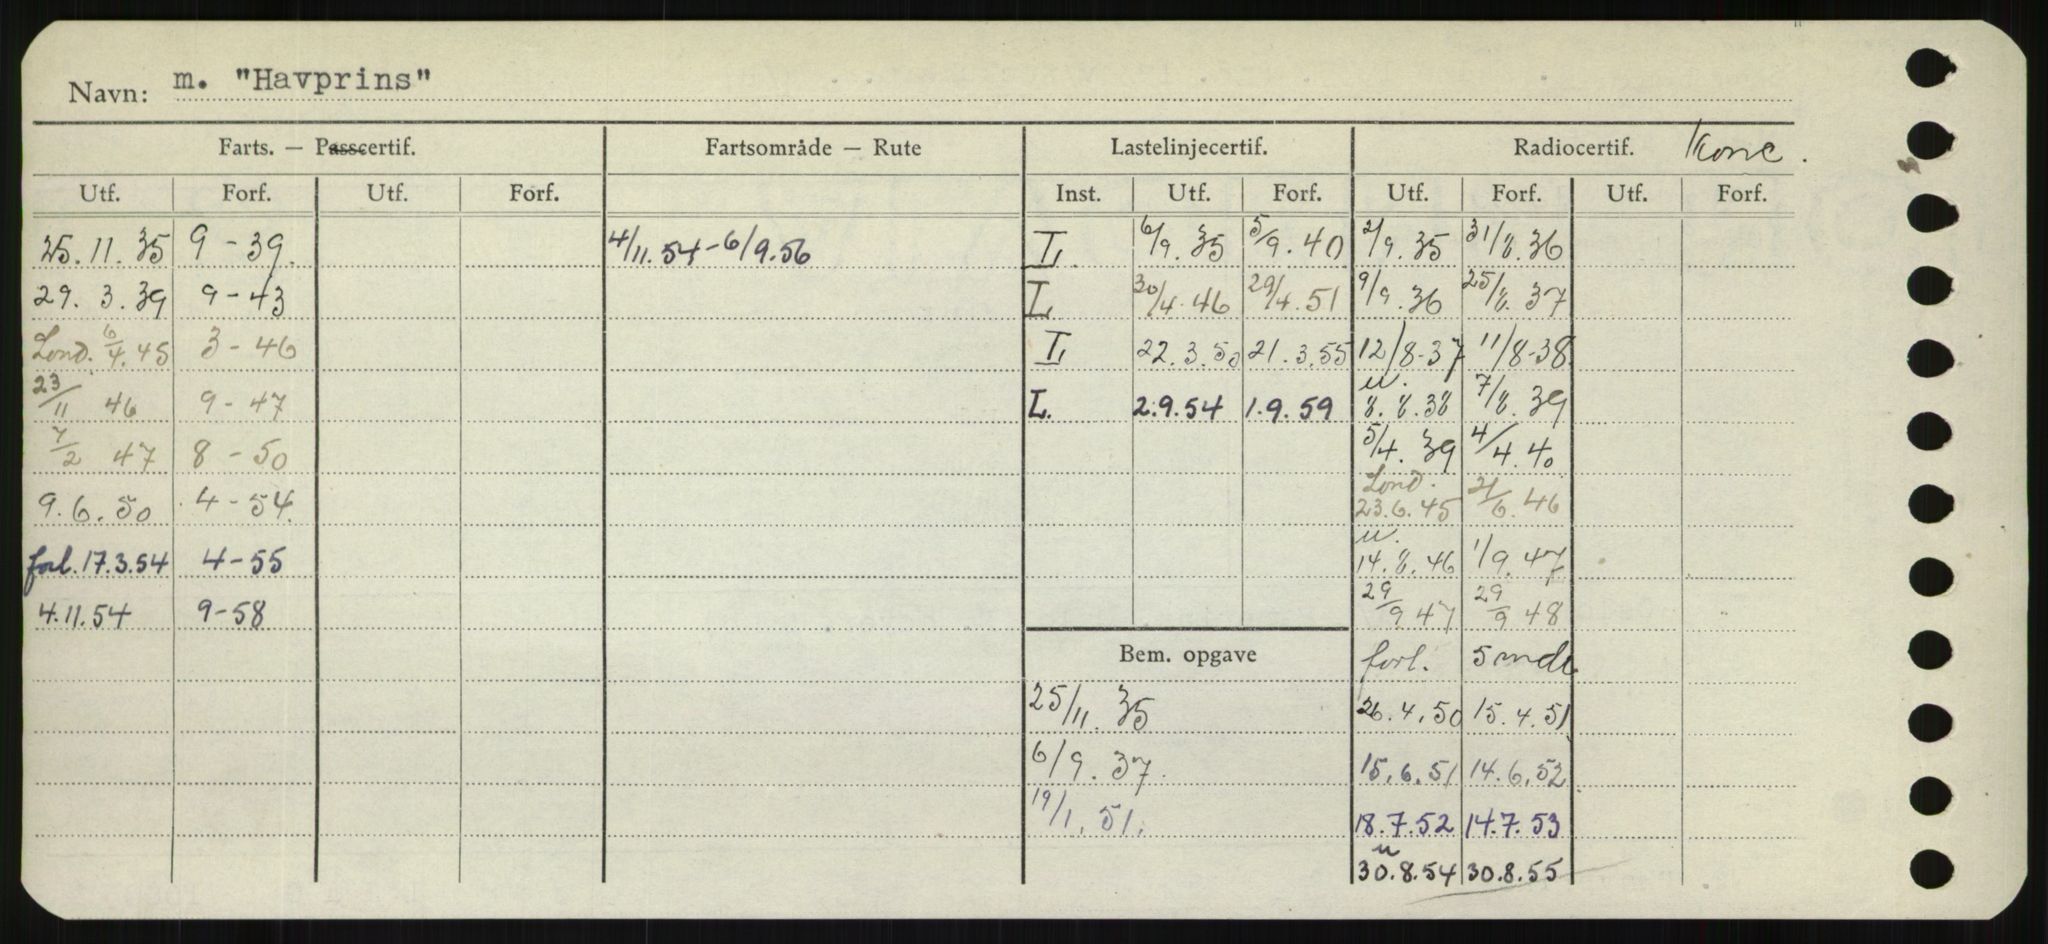 Navn: m. "Havprins"
Farts. — Passcertif. Fartsområde — Rute Lastelinjecertif. Radiocertif. Konc.
Utf. Forf. Utf. Forf. Inst. Utf. Forf. Utf. Forf. Utf. Forf.
25.11.35 9-39. 4/11.54-6/9.56 L. 6/9.35 5/9.40 2/9.35 31/8.36
29.3.39 9-43 L 30/4.46 29/4.51 9/9.36 25/8.37
Lond. 6/4.45 3-46 L 22.3.50 21.3.55 12/8-37 11/8-38.
23/11 46 9-47 L. 2.9.54 1.9.59 u. 8.8.38 7/8.39
7/2 47 8-50 5/4.39 4/4.40
9.6.50 4-54. Lond. 23.6.45 21/6.46
forl. 17.3.54 4-55 u. 14.8.46 1/9.47
4.11.54 9-58 29/9 47 29/9 48
Bem. opgave forl. 5 mdr
25/11.35 26.4.50 15.4.51
6/9.37. 15.6.51 14.6.52
19/1.51. 18.7.52 14.7.53
u 30.8.54 30.8.55